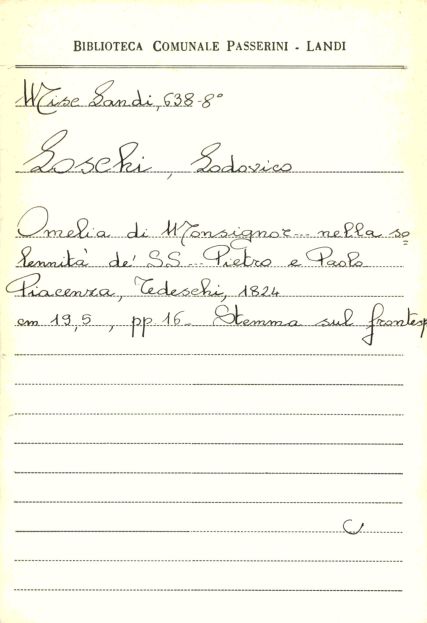 BIBLIOTECA COMUNALE PASSERINI - LANDI
Misc Landi, 638-8°
Loschi, Lodovico
Omelia di Monsignor... nella so=
lennità de' SS... Pietro e Paolo
Piacenza, Tedeschi, 1824
cm 19,5, pp 16. Stemma sul frontesp
C